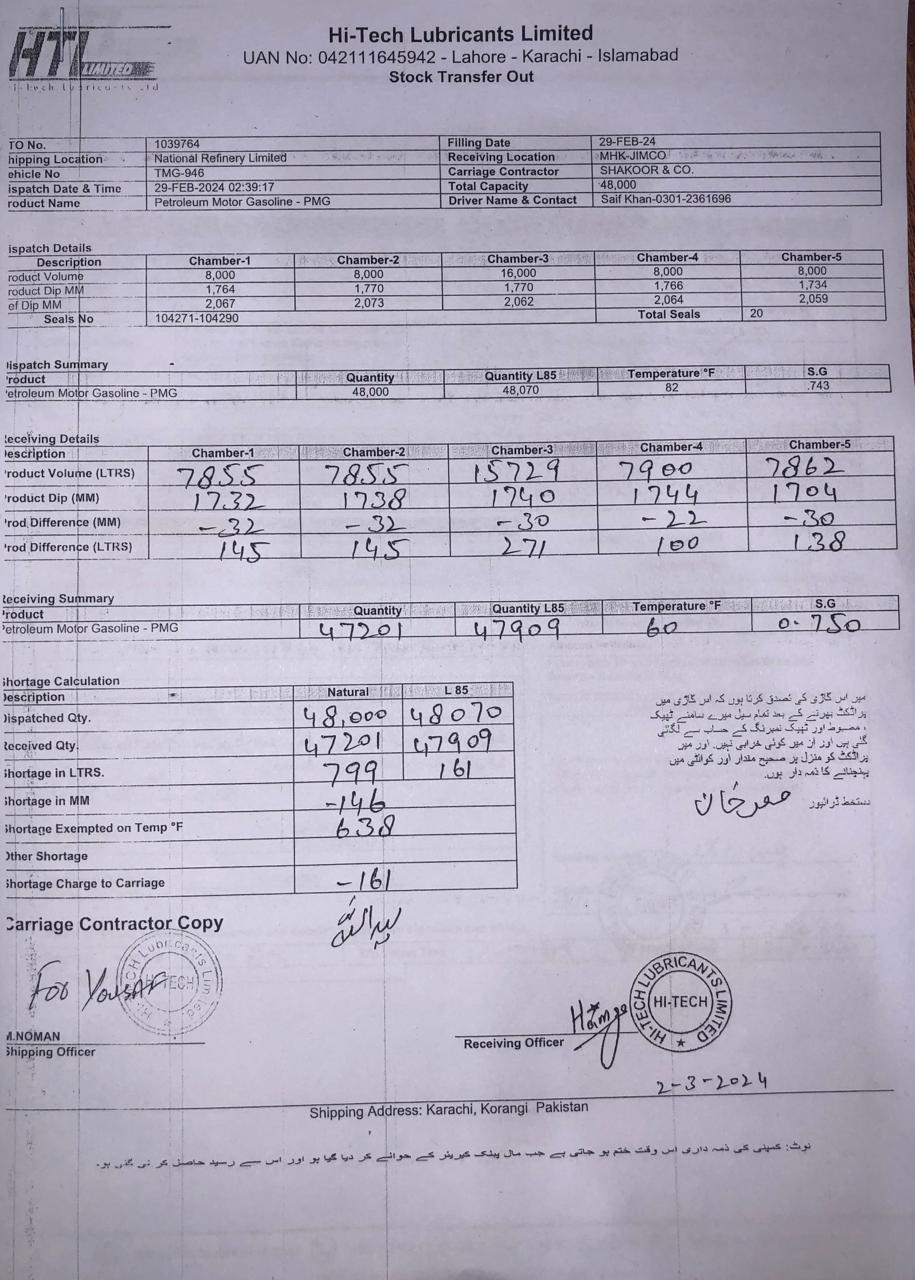 HTL LIMITED
Hi-Tech Lubricants Ltd
Hi-Tech Lubricants Limited
UAN No: 042111645942 - Lahore - Karachi - Islamabad
Stock Transfer Out
TO No. 1039764 Filling Date 29-FEB-24
hipping Location National Refinery Limited Receiving Location MHK-JIMCO
ehicle No TMG-946 Carriage Contractor SHAKOOR & CO.
ispatch Date & Time 29-FEB-2024 02:39:17 Total Capacity 48,000
roduct Name Petroleum Motor Gasoline - PMG Driver Name & Contact Saif Khan-0301-2361696
ispatch Details
Description Chamber-1 Chamber-2 Chamber-3 Chamber-4 Chamber-5
roduct Volume 8,000 8,000 16,000 8,000 8,000
roduct Dip MM 1,764 1,770 1,770 1,766 1,734
ef Dip MM 2,067 2,073 2,062 2,064 2,059
Seals No 104271-104290 Total Seals 20
ispatch Summary -
roduct Quantity Quantity L85 Temperature °F S.G
etroleum Motor Gasoline - PMG 48,000 48,070 82 .743
eceiving Details
escription Chamber-1 Chamber-2 Chamber-3 Chamber-4 Chamber-5
roduct Volume (LTRS) 7855 7855 15729 7900 7862
roduct Dip (MM) 1732 1738 1740 1744 1704
rod Difference (MM) -32 -32 -30 -22 -30
rod Difference (LTRS) 145 145 271 100 138
eceiving Summary
roduct Quantity Quantity L85 Temperature °F S.G
etroleum Motor Gasoline - PMG 47201 47909 60 0.750
hortage Calculation
escription - Natural L 85
ispatched Qty. 48,000 48070
eceived Qty. 47201 47909
hortage in LTRS. 799 161
hortage in MM -146
hortage Exempted on Temp °F 638
Other Shortage
hortage Charge to Carriage -161
میں اس گاڑی کی تصدق کرتا ہوں کہ اس گاڑی میں
پراڈکٹ بھرنے کے بعد تمام سیل میرے سامنے ٹھیک
، مضبوط اور ٹھیک نمبرنگ کے حساب سے لگائی
گئی ہیں اور ان میں کوئی خرابی نہیں. اور میں
پراڈکٹ کو منزل پر صحیح مقدار اور کوالٹی میں
پہنچانے کا ذمہ دار ہوں.
دستخط ڈرائیور
Carriage Contractor Copy
For Yousaf
HI-TECH Lubricants Limited
HI-TECH
M.NOMAN
Shipping Officer
Receiving Officer
HI-TECH LUBRICANTS LIMITED
HI-TECH
2-3-2024
Shipping Address: Karachi, Korangi Pakistan
نوٹ: کمپنی کی ذمہ داری اس وقت ختم ہو جاتی ہے جب مال پبلک کیریئر کے حوالے کر دیا گیا ہو اور اس سے رسید حاصل کر لی گئی ہو.